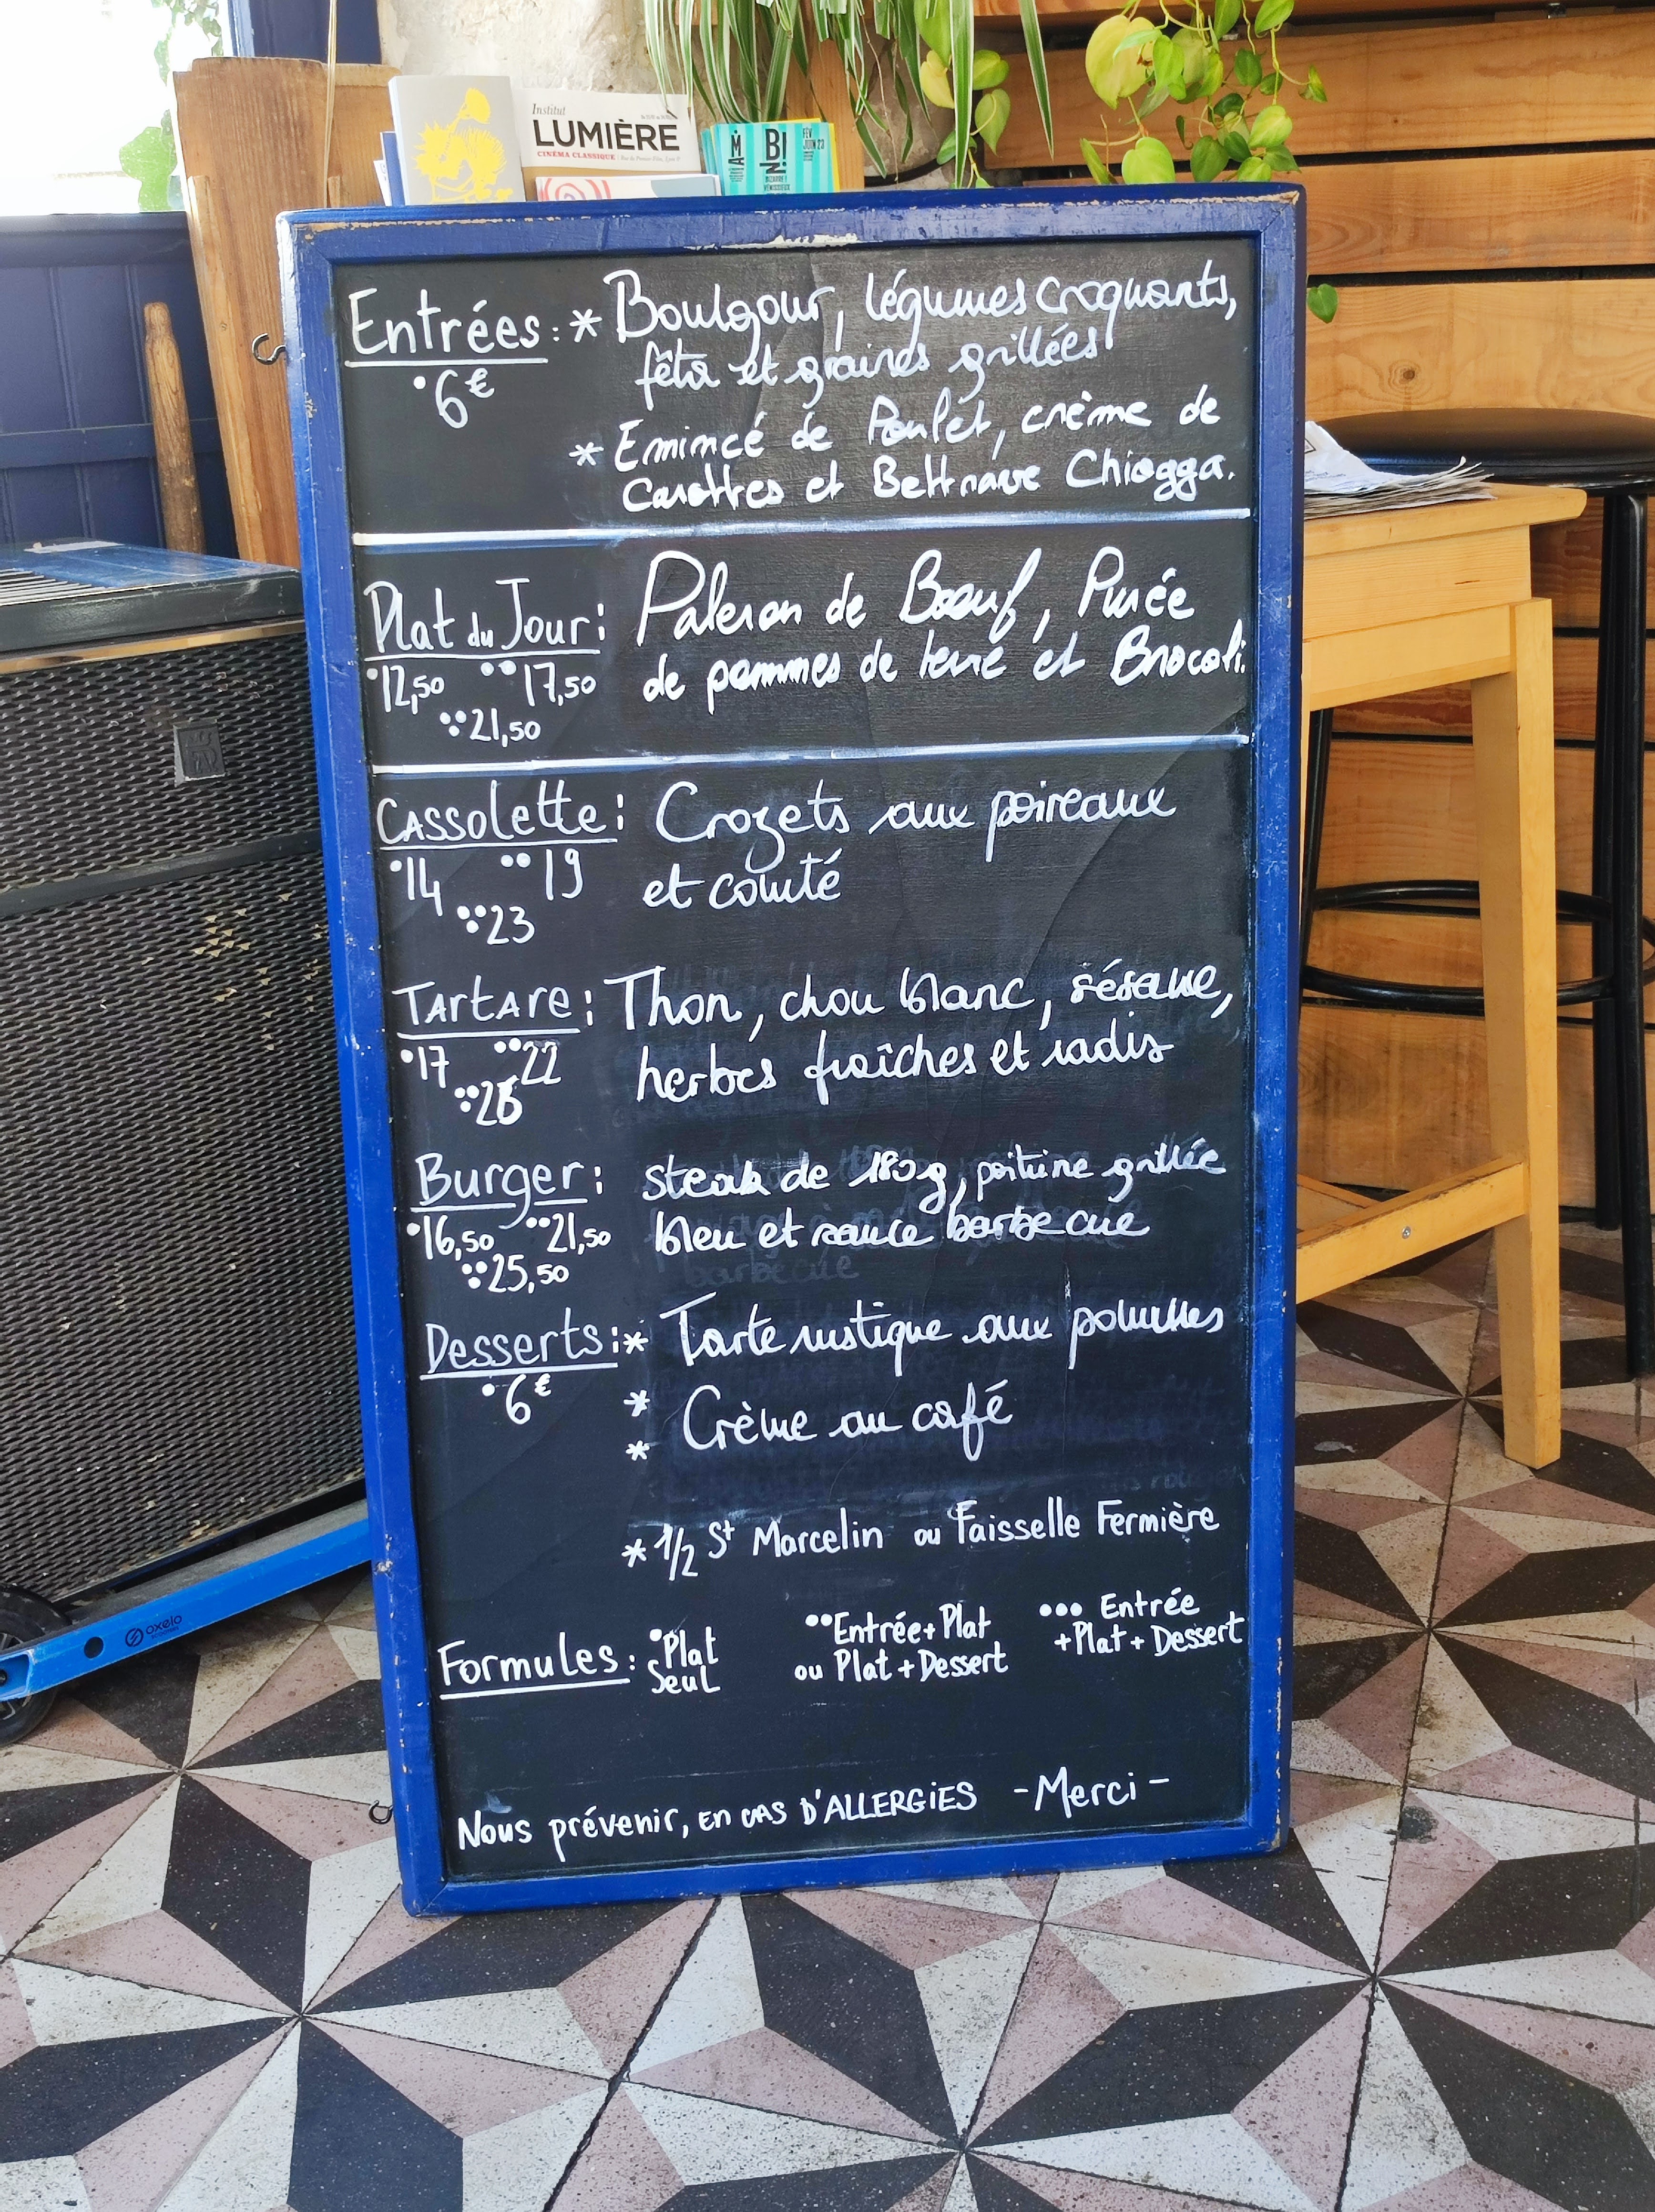 Institut
LUMIÈRE
CINÉMA CLASSIQUE
Entrées : * Boulgour, légumes croquants,
fêta et graines grillées
•6€
* Emincé de Poulet, crème de
carottes et Bettrave Chiogga.
Plat du Jour : Paleron de Bœuf, Purée
de pommes de terre et Brocoli.
•12,50 ••17,50
•••21,50
CASSOLEtte : Crozets aux poireaux
et comté
•14 ••19
•••23
TARtARe : Thon, chou blanc, sésame,
herbes fraîches et radis
•17 ••22
•••26
Burger : steak de 180g, poitrine grillée
•16,50 ••21,50 bleu et sauce barbecue
•••25,50
Desserts : * Tarte rustique aux pommes
•6€
* Crème au café
*
* 1/2 St Marcelin ou Faisselle Fermière
Formules : •Plat Seul
••Entrée+Plat
ou Plat+Dessert
••• Entrée
+Plat+Dessert
Nous prévenir, EN CAS D'ALLERGIES -Merci-
oxelo